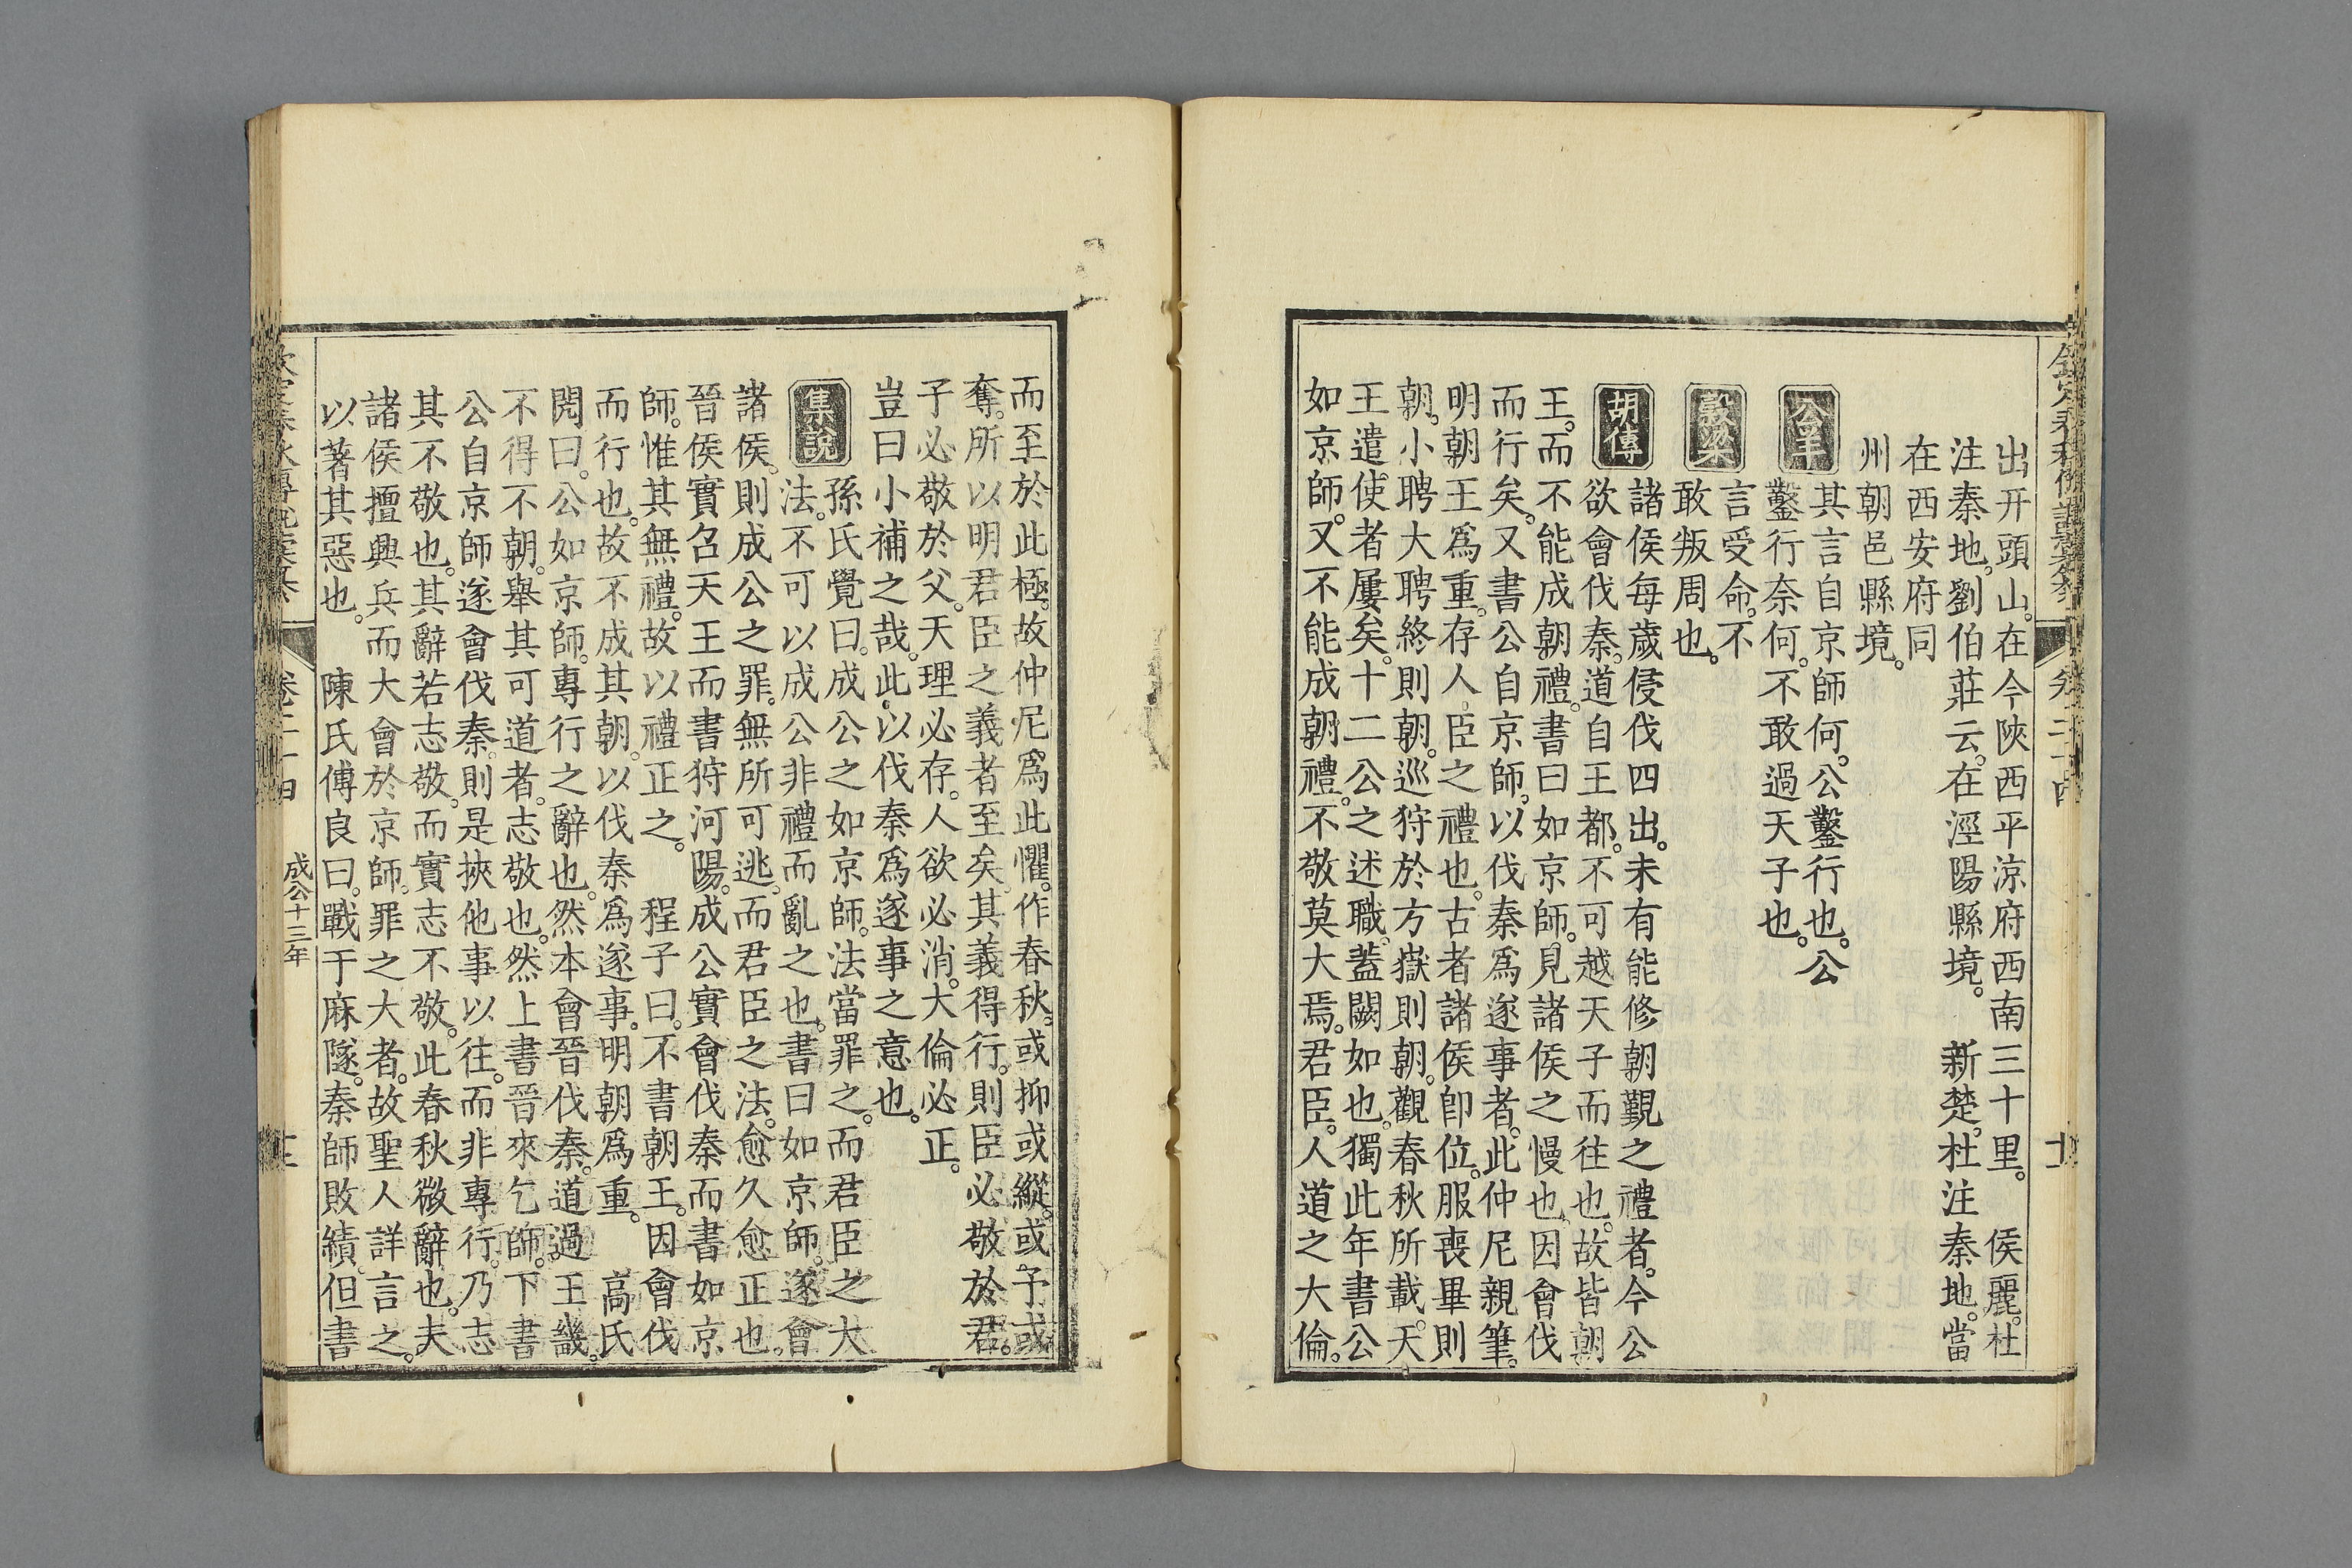 出幵頭山。在今陜西平涼府西南三十里。　侯麗。杜
注秦地。劉伯莊云。在涇陽縣境。　新楚。杜注秦地。當
在西安府同
州朝邑縣境。
公羊
其言自京師何。公鑿行也。公
鑿行奈何。不敢過天子也。
穀梁
言受命。不
敢叛周也。
胡傳
諸侯每歲侵伐四出。未有能修朝覲之禮者。今公
欲會伐秦。道自王都。不可越天子而往也。故皆朝
王。而不能成朝禮。書曰如京師。見諸侯之慢也。因會伐
而行矣。又書公自京師。以伐秦爲遂事者。此仲尼親筆。
明朝王爲重。存人臣之禮也。古者諸侯卽位。服喪畢則
朝。小聘大聘終則朝。巡狩於方嶽則朝。觀春秋所載。天
王遣使者屢矣。十二公之述職。蓋闕如也。獨此年書公
如京師。又不能成朝禮。不敬莫大焉。君臣。人道之大倫。
而至於此極。故仲尼爲此懼。作春秋。或抑或縱。或予或
奪。所以明君臣之義者至矣。其義得行。則臣必敬於君。
子必敬於父。天理必存。人欲必消。大倫必正。
豈曰小補之哉。此以伐秦爲遂事之意也。
集說
孫氏覺曰。成公之如京師。法當罪之。而君臣之大
法。不可以成公非禮而亂之也。書曰如京師。遂會
諸侯。則成公之罪。無所可逃。而君臣之法。愈久愈正也。
晉侯實召天王而書狩河陽。成公實會伐秦而書如京
師。惟其無禮。故以禮正之。　程子曰。不書朝王。因會伐
而行也。故不成其朝。以伐秦爲遂事。明朝爲重。　高氏
閌曰。公如京師。專行之辭也。然本會晉伐秦。道過王畿。
不得不朝。舉其可道者。志敬也。然上書晉來乞師。下書
公自京師遂會伐秦。則是挾他事以往。而非專行。乃志
其不敬也。其辭若志敬。而實志不敬。此春秋微辭也。夫
諸侯擅興兵而大會於京師。罪之大者。故聖人詳言之。
以著其惡也。　陳氏傅良曰。戰于麻隧。秦師敗績。但書
成公十三年